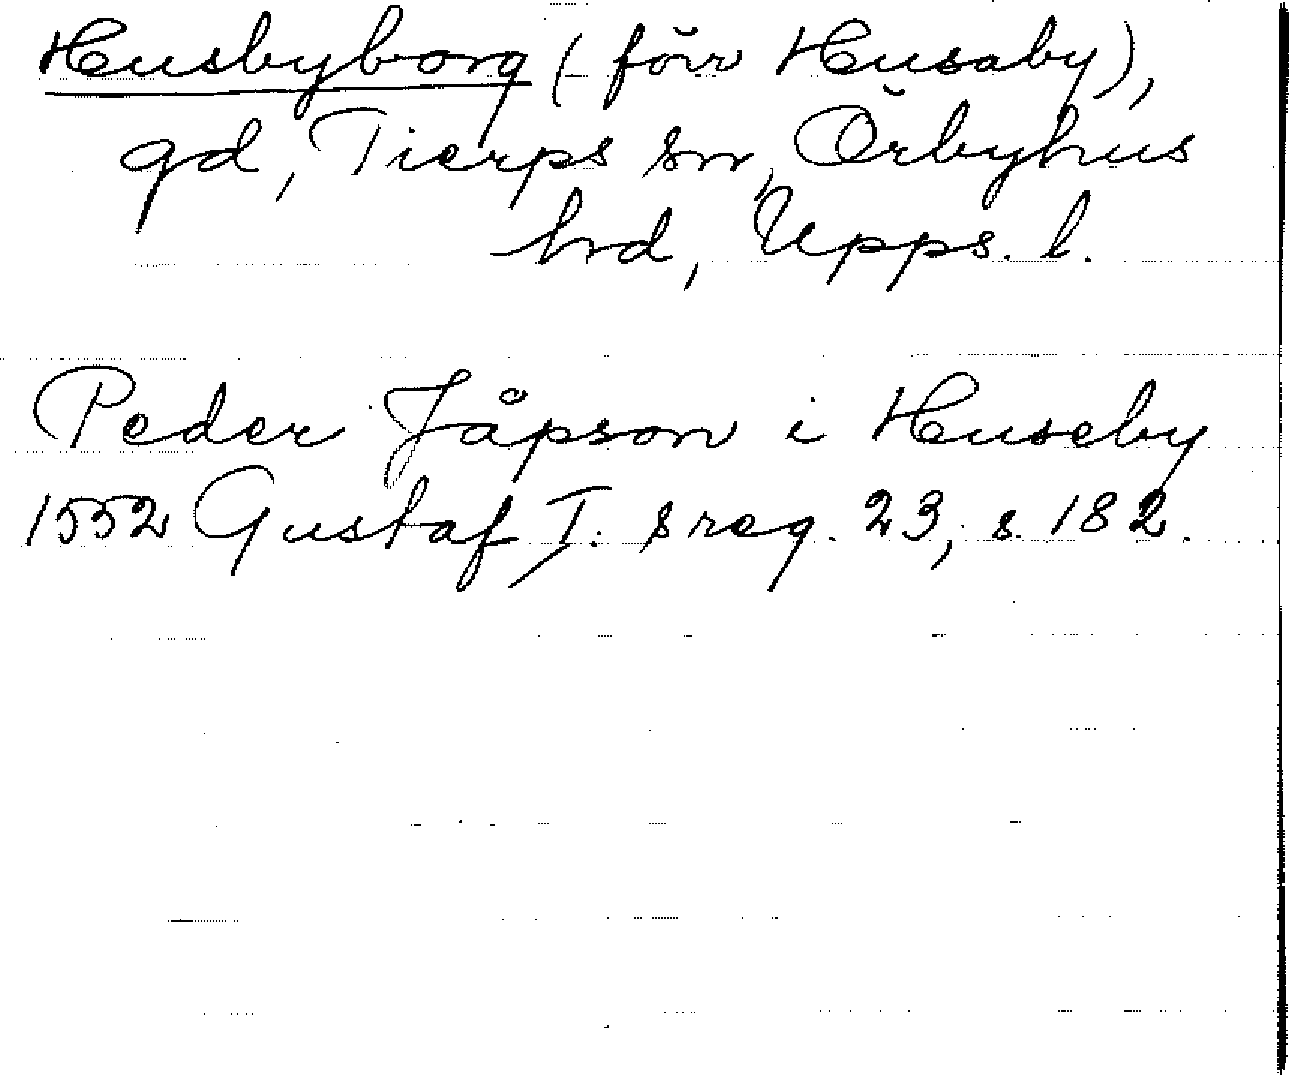 Husbyborg (förr Husaby),
gd, Tierps sn, Örbyhus
hrd, Upps. l.
Peder Jåpson i Huseby
1552 Gustaf I: s reg. 23, s. 182.